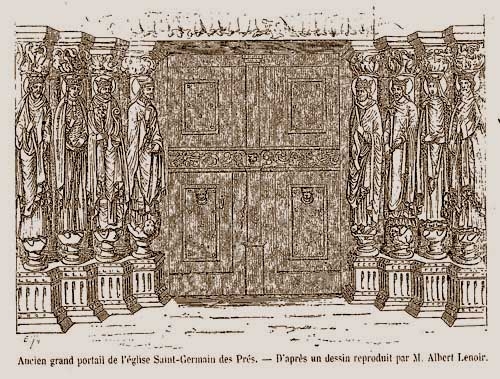 Ancien grand portail de l'église Saint-Germain des Prés. — D'après un dessin reproduit par M. Albert Lenoir.